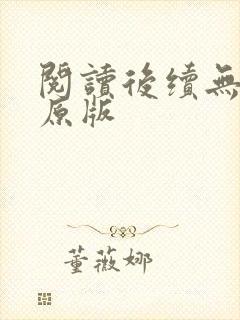 閱讀後續無
原版
董薇娜